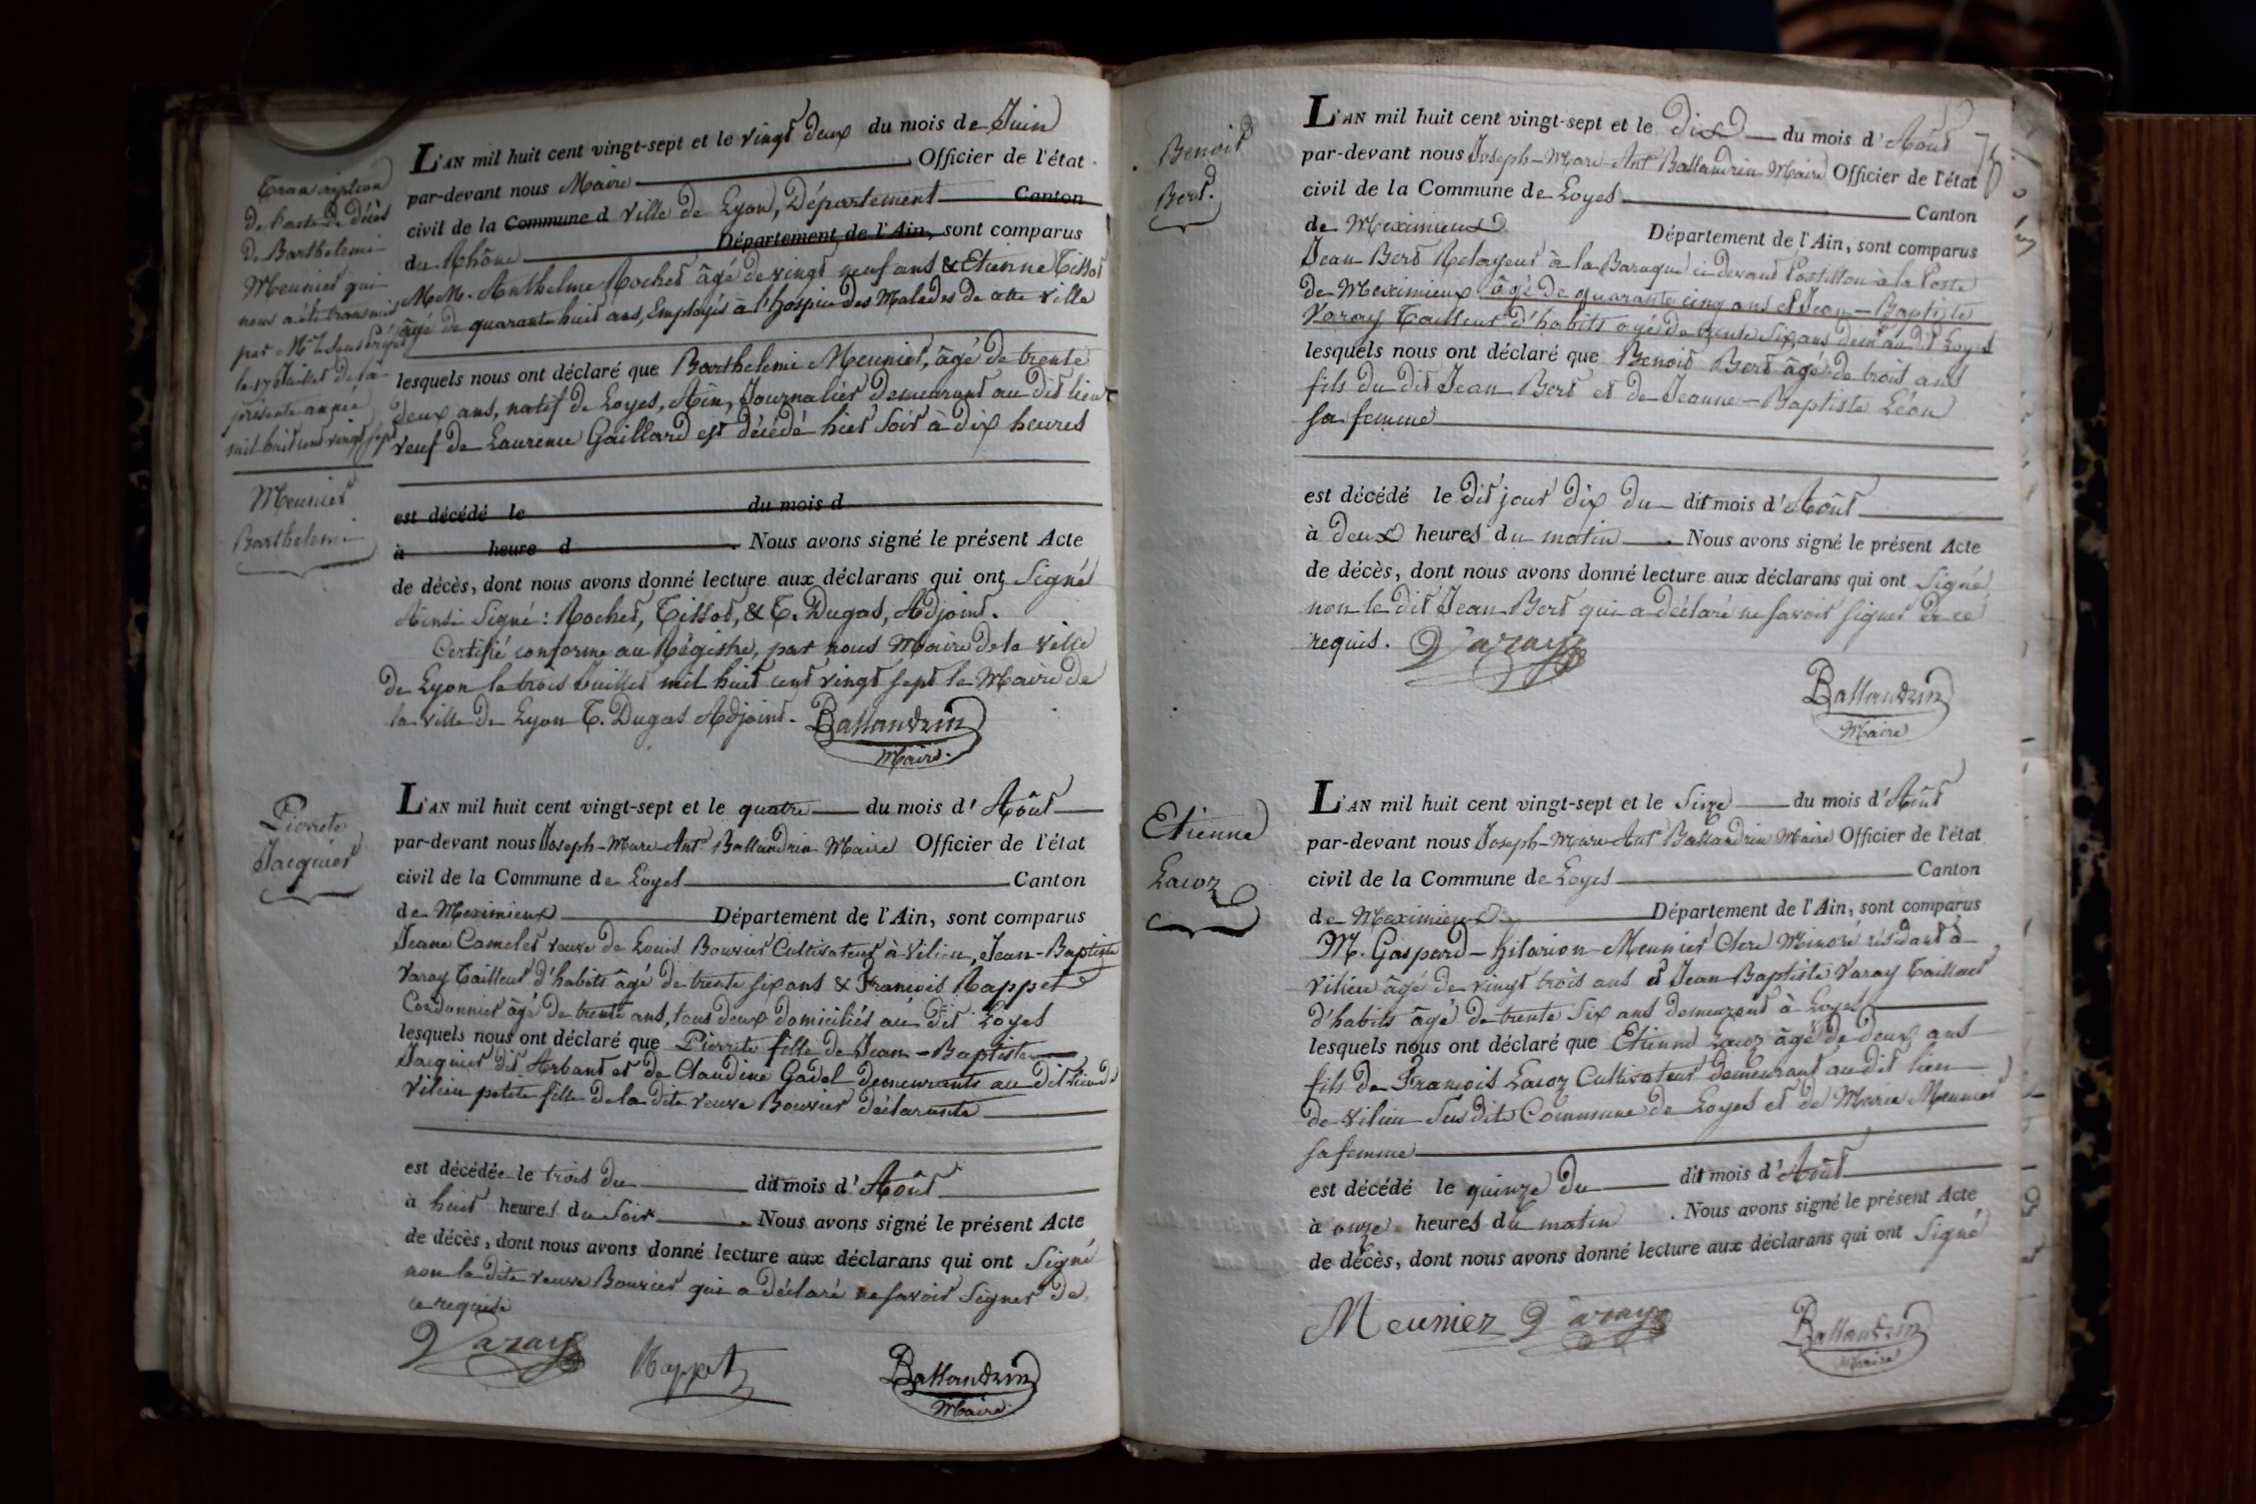 Transcription
de l'acte de décès
de Barthelemi
Meunier qui
nous a été transmis
par Mr le Sous Préfet
le 17 Juillet de la
présente année
mil huit cent vingt sept
Meunier
Barthelemi
L'AN mil huit cent vingt-sept et le vingt deux du mois de Juin
par-devant nous Maire Officier de l'état
civil de la Commune d ville de Lyon, Département Canton
du Rhône Département de l'Ain, sont comparus
M.M. Anthelme Rochet âgé de vingt neuf ans & Etienne Tissot
âgé de quarante huit ans, Employés à l'hospice des Malades de cette ville
lesquels nous ont déclaré que Barthelemi Meunier, âgé de trente
deux ans, natif de Loyes, Ain, Journalier demeurant au dit lieu
veuf de Laurence Gaillard est décédé hier soir à dix heures
est décédé le du mois d
à heure d . Nous avons signé le présent Acte
de décès, dont nous avons donné lecture aux déclarans qui ont Signé
Ainsi Signé : Rochet, Tissot, & T. Dugas, Adjoint.
Certifié conforme au Régistre, par nous Maire de la ville
de Lyon le trois Juillet mil huit cent vingt sept le Maire de
la ville de Lyon T. Dugas Adjoint.
Ballandrin
Maire.
Pierrete
Jacquier
L'AN mil huit cent vingt-sept et le quatre du mois d' Août
par-devant nous Joseph-Marc-Ant. Ballandrin Maire Officier de l'état
civil de la Commune de Loyes Canton
de Meximieux Département de l'Ain, sont comparus
Jeane Camelet veuve de Louis Bouvier Cultivateur à Vilieu, Jean-Baptiste
Varay Tailleur d'habits âgé de trente six ans & François Rappet
Cordonnier âgé de trente ans, tous deux domiciliés au dit Loyes
lesquels nous ont déclaré que Pierrete fille de Jean-Baptiste
Jacquier dit Arbant et de Claudine Gadel demeurants au dit lieu de
Vilieu petite fille de la dite veuve Bouvier déclarante
est décédée le trois du dit mois d' Août
à huit heures du soir . Nous avons signé le présent Acte
de décès, dont nous avons donné lecture aux déclarans qui ont Signé
non la dite veuve Bouvier qui a déclaré ne savoir Signer de
ce requise
Varay Rappet Ballandrin
Maire.
Benoit
Bert.
76
L'AN mil huit cent vingt-sept et le dix du mois d' Août
par-devant nous Joseph-Marc-Ant Ballandrin Maire Officier de l'état
civil de la Commune de Loyes Canton
de Meximieux Département de l'Ain, sont comparus
Jean Bert Relayeur à la Baraque ci devant Postillon à la Poste
de Meximieux âgé de quarante cinq ans et Jean-Baptiste
Varay Tailleur d'habits âgé de trente six ans dem au dit Loyes
lesquels nous ont déclaré que Benoit Bert âgé de trois ans
fils du dit Jean Bert et de Jeanne-Baptiste Léon
sa femme
est décédé le dit jour dix du dit mois d' Août
à deux heures du matin . Nous avons signé le présent Acte
de décès, dont nous avons donné lecture aux déclarans qui ont Signé
non le dit Jean Bert qui a déclaré ne savoir signer de ce
requis. Varay
Ballandrin
Maire
Etienne
Lacoz
L'AN mil huit cent vingt-sept et le Seize du mois d' Août
par-devant nous Joseph-Marc-Ant Ballandrin Maire Officier de l'état
civil de la Commune de Loyes Canton
de Meximieux Département de l'Ain, sont comparus
M. Gaspard-hilarion Meunier Clerc Minoré résidant à
Vilieu âgé de vingt trois ans et Jean Baptiste Varay Tailleur
d'habits âgé de trente six ans demeurant à Loyes
lesquels nous ont déclaré que Etienne Lacoz âgé de deux ans
fils de François Lacoz Cultivateur demeurant au dit lieu
de Vilieu Sus dite Commune de Loyes et de Marie Meunier
sa femme
est décédé le quinze du dit mois d' Août
à onze heures du matin . Nous avons signé le présent Acte
de décès, dont nous avons donné lecture aux déclarans qui ont Signé
Meunier Varay Ballandrin
Maire